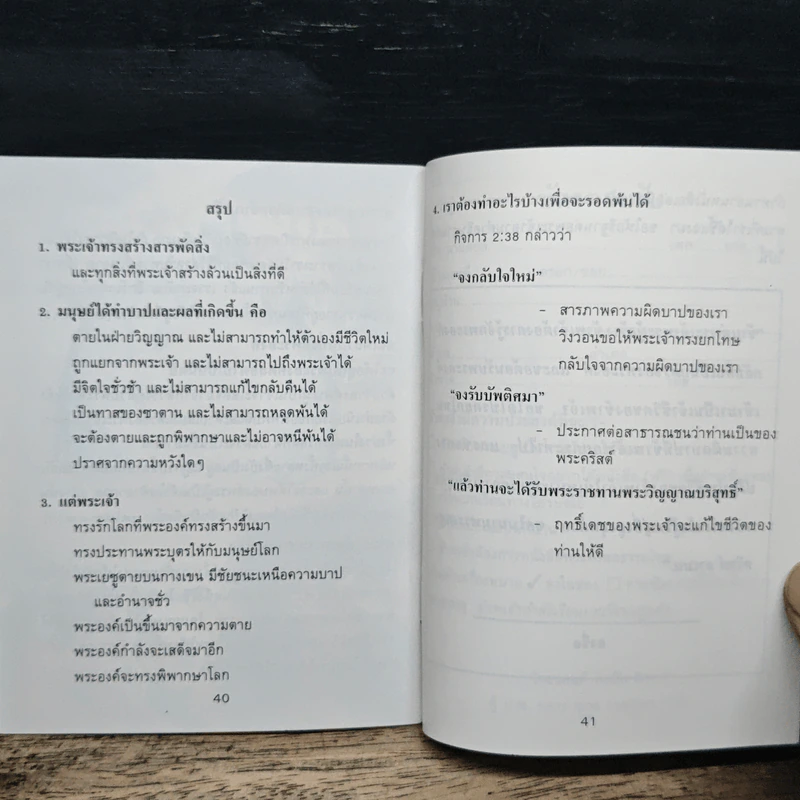 สรุป
1. พระเจ้าทรงสร้างสารพัดสิ่ง
และทุกสิ่งที่พระเจ้าสร้างล้วนเป็นสิ่งที่ดี
2. มนุษย์ได้ทำบาปและผลที่เกิดขึ้น คือ
ตายในฝ่ายวิญญาณ และไม่สามารถทำให้ตัวเองมีชีวิตใหม่
ถูกแยกจากพระเจ้า และไม่สามารถไปถึงพระเจ้าได้
มีจิตใจชั่วช้า และไม่สามารถแก้ไขกลับคืนได้
เป็นทาสของซาตาน และไม่สามารถหลุดพ้นได้
จะต้องตายและถูกพิพากษาและไม่อาจหนีพ้นได้
ปราศจากความหวังใดๆ
3. แต่พระเจ้า
ทรงรักโลกที่พระองค์ทรงสร้างขึ้นมา
ทรงประทานพระบุตรให้กับมนุษย์โลก
พระเยซูตายบนกางเขน มีชัยชนะเหนือความบาป
และอำนาจชั่ว
พระองค์เป็นขึ้นมาจากความตาย
พระองค์กำลังจะเสด็จมาอีก
พระองค์จะทรงพิพากษาโลก
40
4. เราต้องทำอะไรบ้างเพื่อจะรอดพ้นได้
กิจการ 2:38 กล่าวว่า
“จงกลับใจใหม่”
- สารภาพความผิดบาปของเรา
วิงวอนขอให้พระเจ้าทรงยกโทษ
กลับใจจากความผิดบาปของเรา
“จงรับบัพติศมา”
- ประกาศต่อสาธารณชนว่าท่านเป็นของ
พระคริสต์
“แล้วท่านจะได้รับพระราชทานพระวิญญาณบริสุทธิ์”
- ฤทธิ์เดชของพระเจ้าจะแก้ไขชีวิตของ
ท่านให้ดี
41